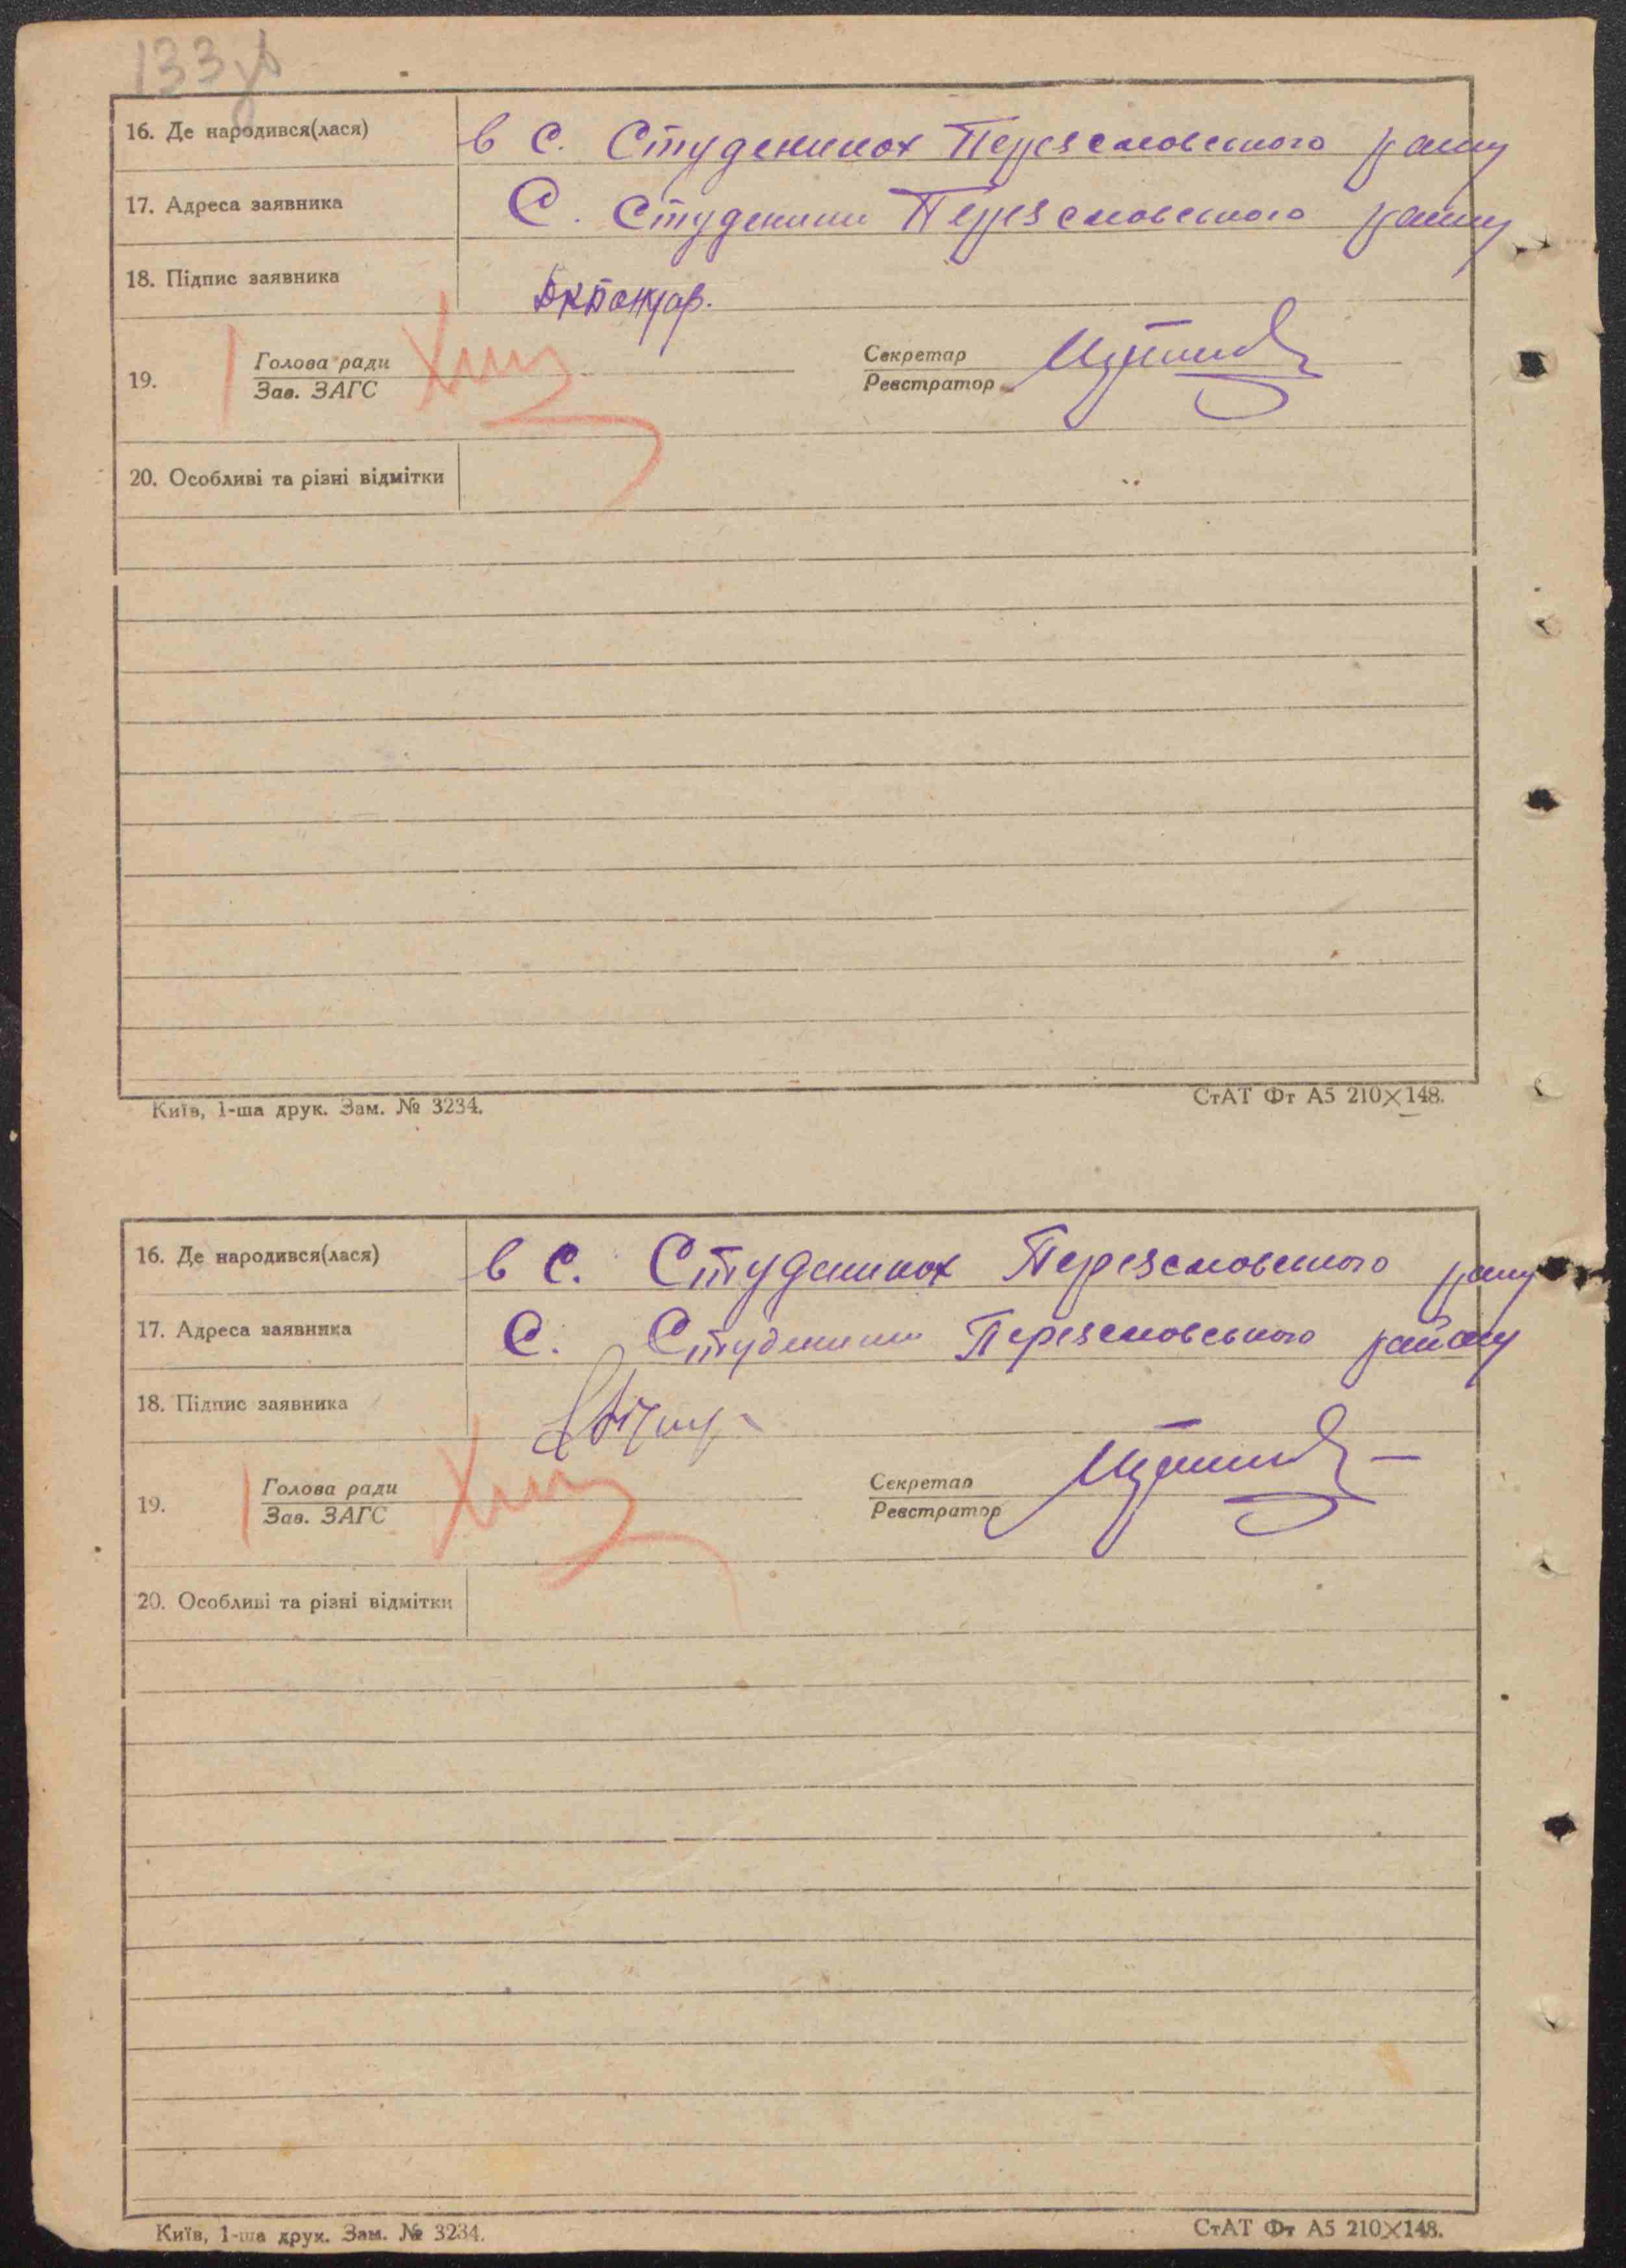 133
16. Де народився(лася) в с. Студениках Переяславського
17. Адреса заявника С. Студеники Переяславського
18. Підпис заявника
19. Голова ради Секретар
Зав. ЗАГС Реєстратор
20. Особливі та різні відмітки
Київ, 1-ша друк. Зам. № 3234. СтАТ Фт А5 210×148.
16. Де народився(лася) в с. Студениках Переяславського
17. Адреса заявника С. Студеники Переяславського району
18. Підпис заявника
19. Голова ради Секретар
Зав. ЗАГС Реєстратор
20. Особливі та різні відмітки
Київ, 1-ша друк. Зам. № 3234. СтАТ Фт А5 210×148.